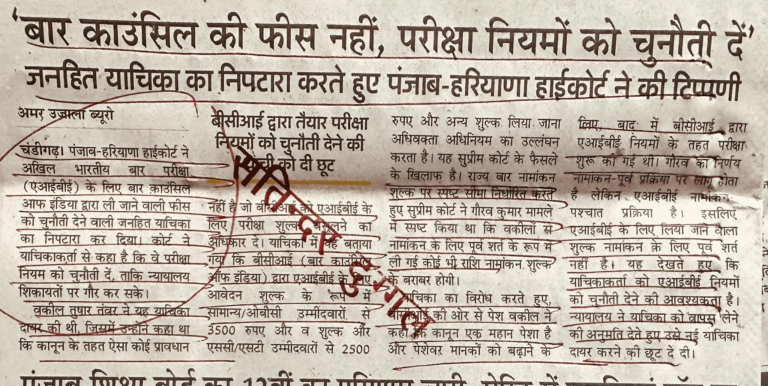 'बार काउंसिल की फीस नहीं, परीक्षा नियमों को चुनौती दें'
जनहित याचिका का निपटारा करते हुए पंजाब-हरियाणा हाईकोर्ट ने की टिप्पणी
अमर उजाला ब्यूरो
चंडीगढ़। पंजाब-हरियाणा हाईकोर्ट ने
अखिल भारतीय बार परीक्षा
(एआईबीई) के लिए बार काउंसिल
आफ इंडिया द्वारा ली जाने वाली फीस
को चुनौती देने वाली जनहित याचिका
का निपटारा कर दिया। कोर्ट ने
याचिकाकर्ता से कहा है कि वे परीक्षा
नियम को चुनौती दें, ताकि न्यायालय
शिकायतों पर गौर कर सके।
वकील तुषार तंवर ने यह याचिका
दायर की थी, जिसमें उन्होंने कहा था
कि कानून के तहत ऐसा कोई प्रावधान
बीसीआई द्वारा तैयार परीक्षा
नियमों को चुनौती देने की
याची को दी छूट
नहीं है जो बीसीआई को एआईबीई के
लिए परीक्षा शुल्क वसूलने का
अधिकार दे। याचिका में यह बताया
गया कि बीसीआई (बार काउंसिल
ऑफ इंडिया) द्वारा एआईबीई के लिए
आवेदन शुल्क के रूप में
सामान्य/ओबीसी उम्मीदवारों से
3500 रुपए और व शुल्क और
एससी/एसटी उम्मीदवारों से 2500
रुपए और अन्य शुल्क लिया जाना
अधिवक्ता अधिनियम का उल्लंघन
करता है। यह सुप्रीम कोर्ट के फैसले
के खिलाफ है। राज्य बार नामांकन
शुल्क पर स्पष्ट सीमा निर्धारित करते
हुए सुप्रीम कोर्ट ने गौरव कुमार मामले
में स्पष्ट किया था कि वकीलों से
नामांकन के लिए पूर्व शर्त के रूप में
ली गई कोई भी राशि नामांकन शुल्क
के बराबर होगी।
याचिका का विरोध करते हुए,
बीसीआई की ओर से पेश वकील ने
कहा कि कानून एक महान पेशा है
और पेशेवर मानकों को बढ़ाने के
लिए, बाद में बीसीआई द्वारा
एआईबीई नियमों के तहत परीक्षा
शुरू की गई थी। गौरव का निर्णय
नामांकन-पूर्व प्रक्रिया पर लागू होता
है लेकिन एआईबीई नामांकन
पश्चात प्रक्रिया है। इसलिए
एआईबीई के लिए लिया जाने वाला
शुल्क नामांकन के लिए पूर्व शर्त
नहीं है। यह देखते हुए कि
याचिकाकर्ता को एआईबीई नियमों
को चुनौती देने की आवश्यकता है।
न्यायालय ने याचिका को वापस लेने
की अनुमति देते हुए उसे नई याचिका
दायर करने की छूट दे दी।